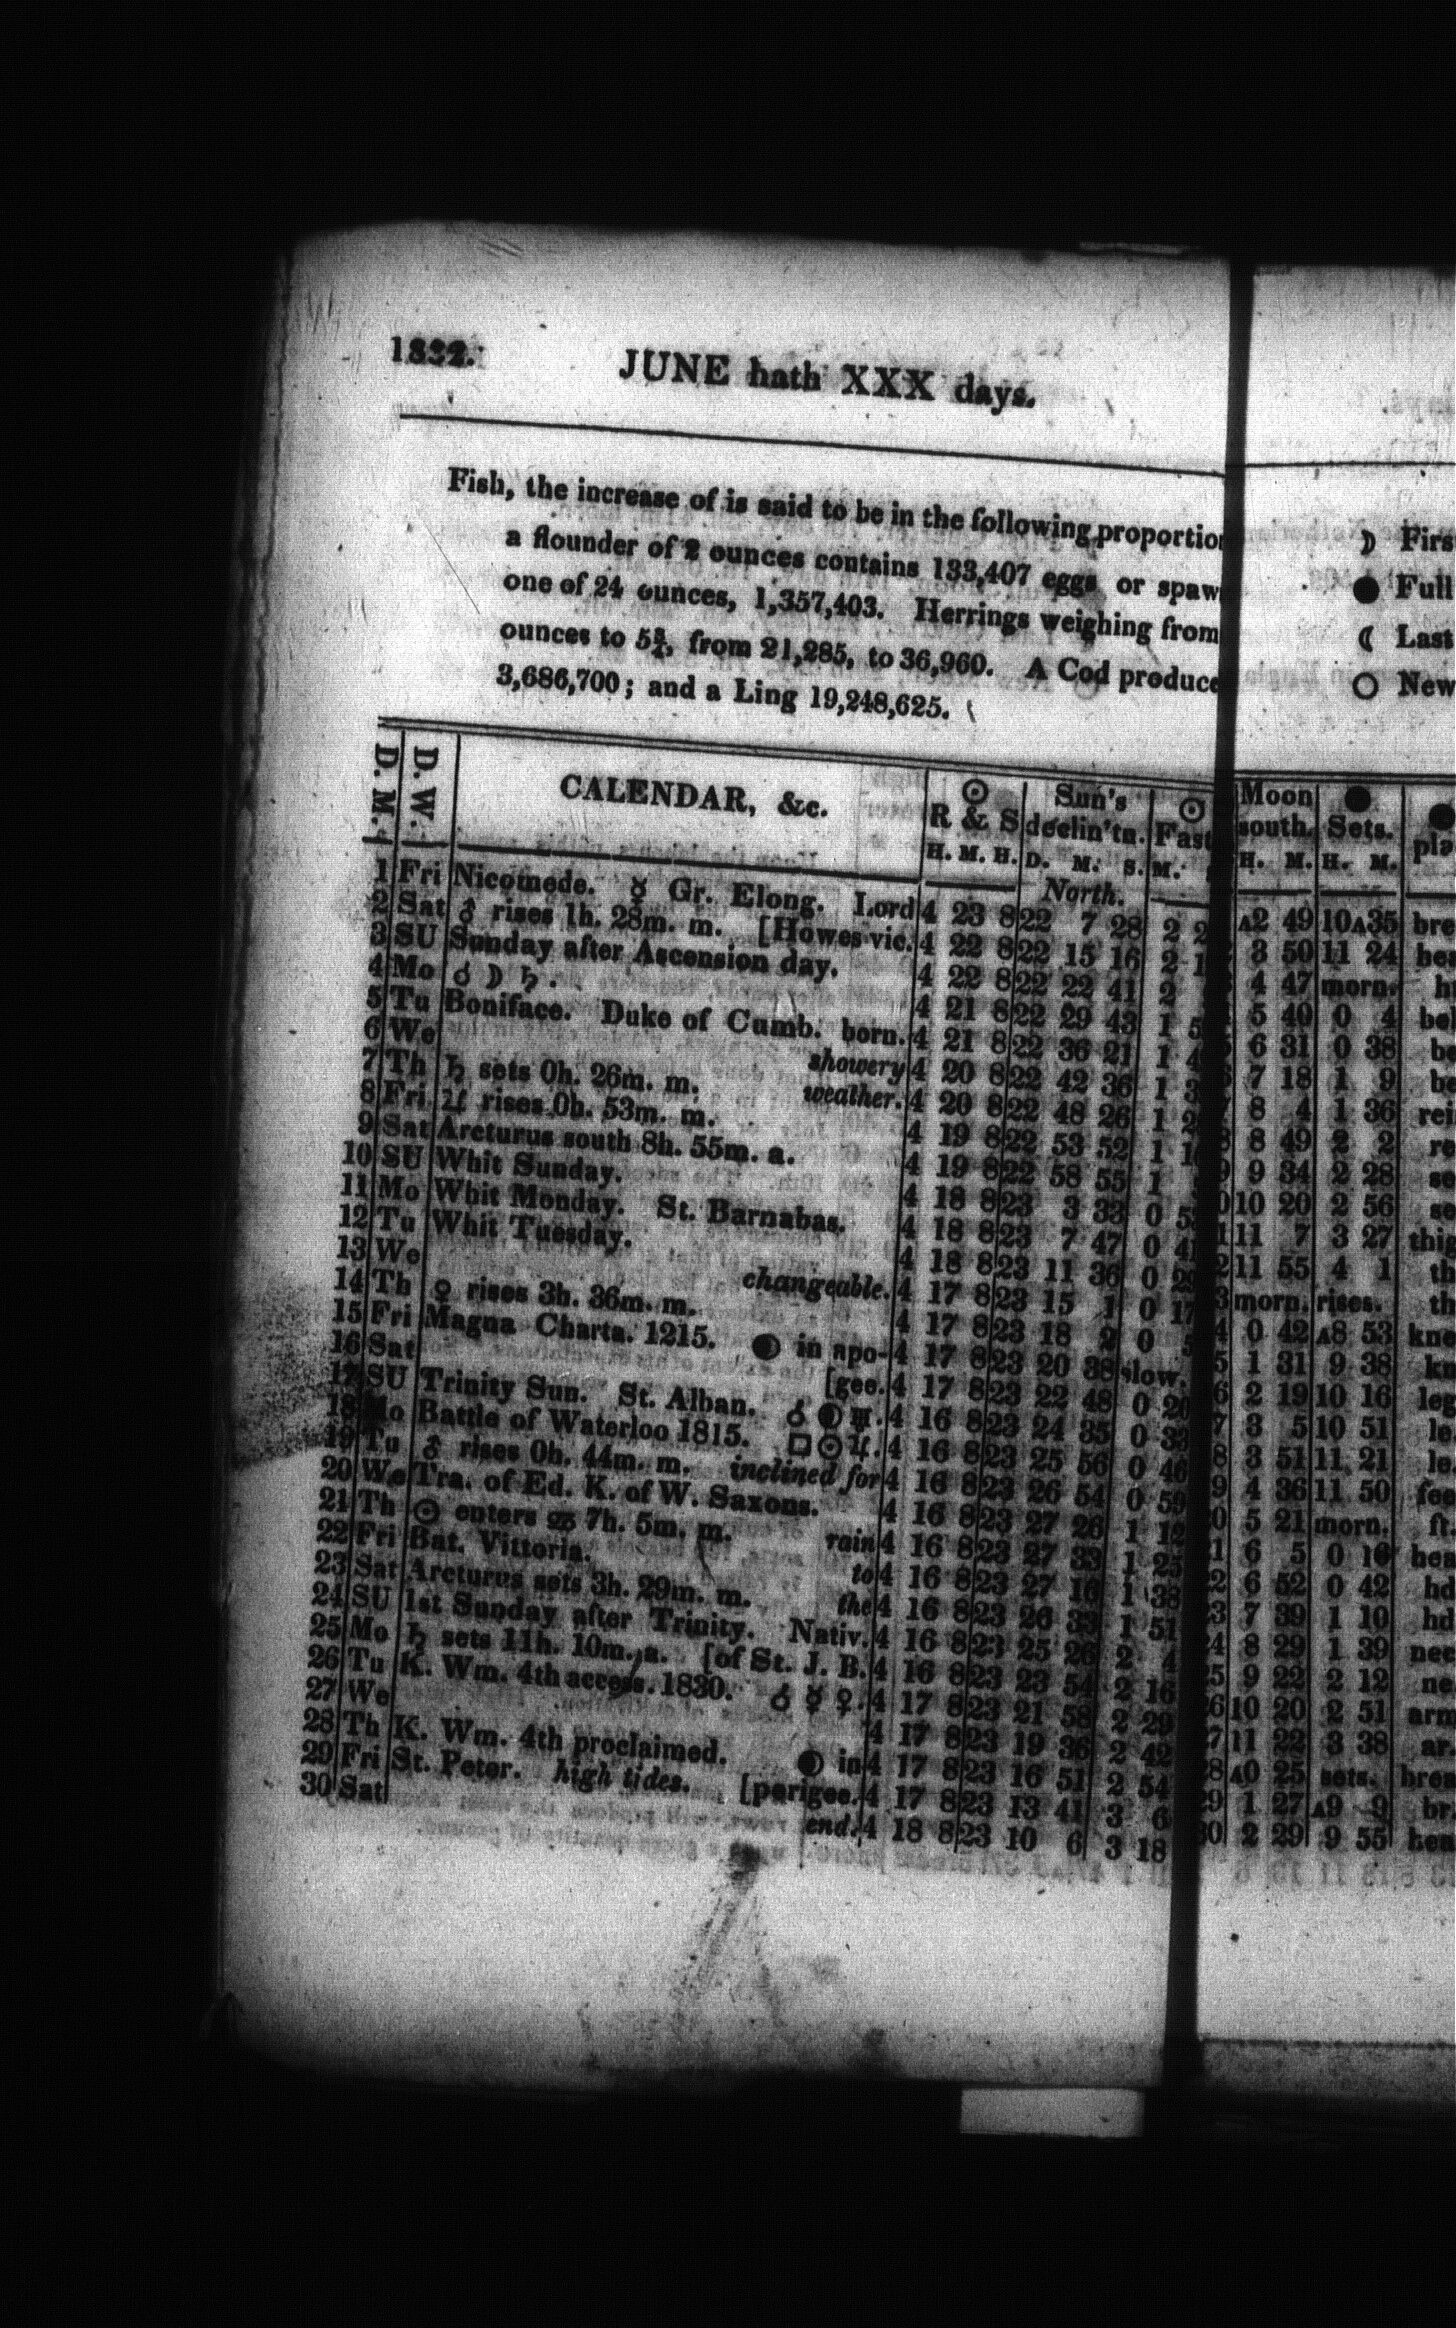 1832.
JUNE hath XXX days.
Fish, the increase of is said to be in the following proportion
a flounder of 2 ounces contains 133,407 eggs or spaw
one of 24 ounces, 1,357,403. Herrings weighing from
ounces to 5¾, from 21,285, to 36,960. A Cod produce
3,686,700; and a Ling 19,248,625.
D. M. D. W. CALENDAR, &c. ☉ R & S Sun's declin'tn. ☉ Fast
H. M. H. D. M. S. M.
North.
1 Fri Nicomede. ☿ Gr. Elong. Lord 4 23 8 22 7 28 2 2
2 Sat ♂ rises 1h. 28m. m. [Howes vic. 4 22 8 22 15 16 2 1
3 SU Sunday after Ascension day. 4 22 8 22 22 41 2
4 Mo ☌ ☽ ♄. 4 21 8 22 29 43 1 5
5 Tu Boniface. Duke of Cumb. born. 4 21 8 22 36 21 1 4
6 We showery 4 20 8 22 42 36 1 3
7 Th ♄ sets 0h. 26m. m. weather. 4 20 8 22 48 26 1 2
8 Fri ♃ rises 0h. 53m. m. 4 19 8 22 53 52 1 1
9 Sat Arcturus south 8h. 55m. a. 4 19 8 22 58 55 1
10 SU Whit Sunday. 4 18 8 23 3 33 0 53
11 Mo Whit Monday. St. Barnabas. 4 18 8 23 7 47 0 41
12 Tu Whit Tuesday. 4 18 8 23 11 36 0 29
13 We changeable. 4 17 8 23 15 1 0 17
14 Th ♀ rises 3h. 36m. m. 4 17 8 23 18 2 0 5
15 Fri Magna Charta. 1215. in apo- 4 17 8 23 20 38 slow.
16 Sat [gee. 4 17 8 23 22 48 0 20
17 SU Trinity Sun. St. Alban. ☌ ♅. 4 16 8 23 24 35 0 33
18 Mo Battle of Waterloo 1815. □ ☉ ♃. 4 16 8 23 25 56 0 46
19 Tu ♂ rises 0h. 44m. m. inclined for 4 16 8 23 26 54 0 59
20 We Tra. of Ed. K. of W. Saxons. 4 16 8 23 27 26 1 12
21 Th ☉ enters ♋ 7h. 5m. m. rain 4 16 8 23 27 33 1 25
22 Fri Bat. Vittoria. to 4 16 8 23 27 16 1 38
23 Sat Arcturus sets 3h. 29m. m. the 4 16 8 23 26 33 1 51
24 SU 1st Sunday after Trinity. Nativ. 4 16 8 23 25 26 2 4
25 Mo ♄ sets 11h. 10m. a. [of St. J. B. 4 16 8 23 23 54 2 16
26 Tu K. Wm. 4th access. 1830. ☌ ☿ ♀. 4 17 8 23 21 58 2 29
27 We 4 17 8 23 19 36 2 42
28 Th K. Wm. 4th proclaimed. in 4 17 8 23 16 51 2 54
29 Fri St. Peter. high tides. [perigee. 4 17 8 23 13 41 3 6
30 Sat end. 4 18 8 23 10 6 3 18
☽ Firs
● Full
☾ Last
○ New
Moon south. ● Sets. ● pla
H. M. H. M.
A2 49 10A35 bre
3 50 11 24 bea
4 47 morn.
5 40 0 4 bel
6 31 0 38 be
7 18 1 9 be
8 4 1 36 rei
8 8 49 2 2 re
9 9 34 2 28 se
0 10 20 2 56 se
1 11 7 3 27 thig
2 11 55 4 1 th
3 morn. rises. th
4 0 42 A8 53 kne
5 1 31 9 38 kn
6 2 19 10 16 leg
7 3 5 10 51 le
8 3 51 11 21 le
9 4 36 11 50 fee
20 5 21 morn. ft.
21 6 5 0 16 hea
22 6 52 0 42 hd
23 7 39 1 10 hd
24 8 29 1 39 nec
25 9 22 2 12 ne
26 10 20 2 51 arm
27 11 22 3 38 ar
28 A0 25 sets. brea
29 1 27 A9 9 br
30 2 29 9 55 hea